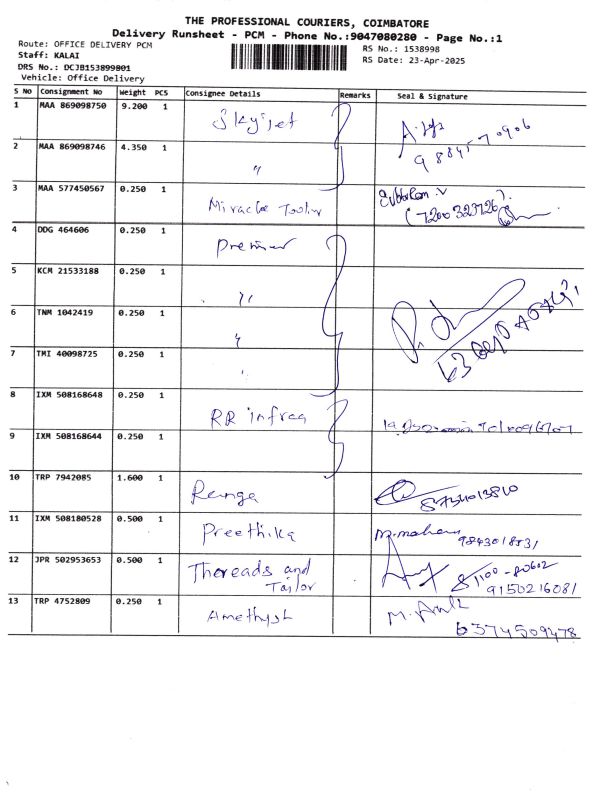 THE PROFESSIONAL COURIERS, COIMBATORE
Delivery Runsheet - PCM - Phone No.:9047080280 - Page No.:1
Route: OFFICE DELIVERY PCM
RS No.: 1538998
Staff: KALAI
RS Date: 23-Apr-2025
DRS No.: DCJB153899801
Vehicle: Office Delivery
S NO Consignment No Weight PCS Consignee Details Remarks Seal & Signature
1 MAA 869098750 9.200 1 Skyjet
2 MAA 869098746 4.350 1 "
3 MAA 577450567 0.250 1 Miracle
4 DDG 464606 0.250 1 Premier
5 KCM 21533188 0.250 1 "
6 TNM 1042419 0.250 1 "
7 TMI 40098725 0.250 1
8 IXM 508168648 0.250 1 RR infraa
9 IXM 508168644 0.250 1
10 TRP 7942085 1.600 1 Renga
11 IXM 508180528 0.500 1 Preethika
12 JPR 502953653 0.500 1 Thoreads and Tailor 9150216081
13 TRP 4752809 0.250 1 Amethyst 6374509478